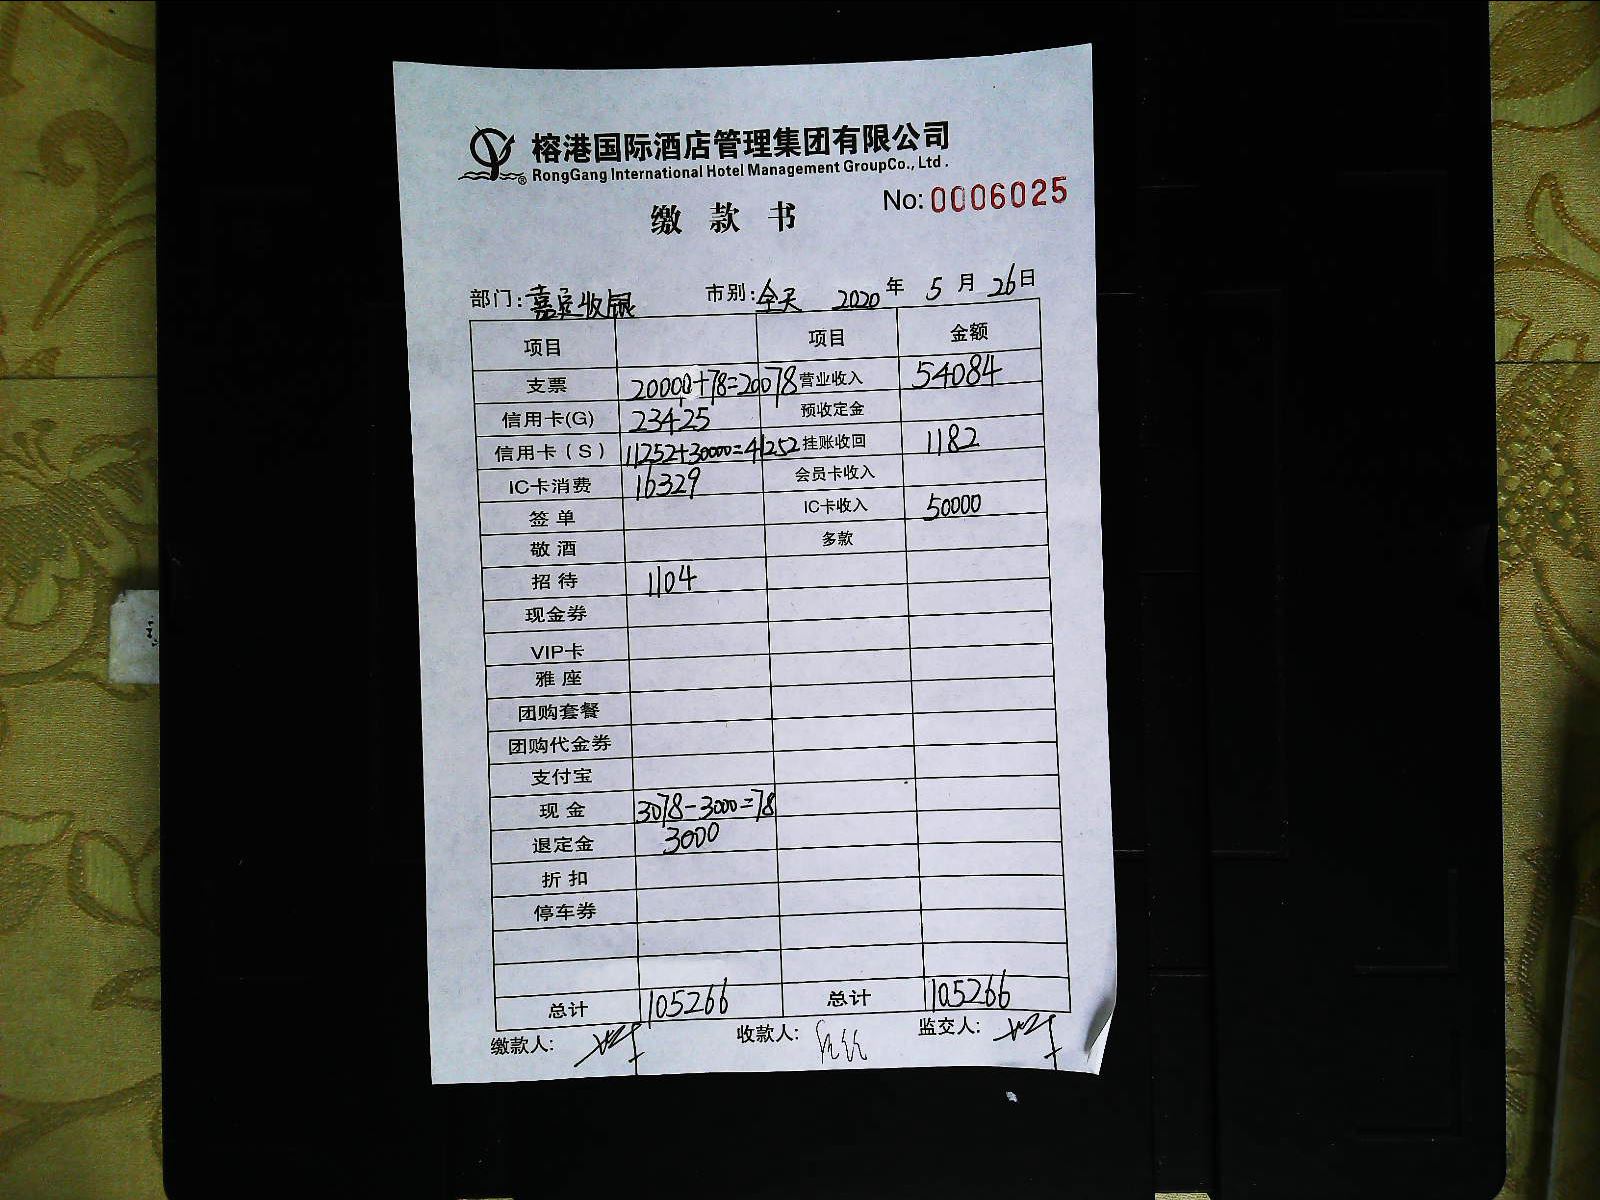 榕港国际酒店管理集团有限公司
RongGang International Hotel Management GroupCo., Ltd.
No: 0006025
缴款书
部门: 嘉定收银 市别: 全天 2020 年 5 月 26 日
项目 项目 金额
支票 20000+78=20078 营业收入 54084
信用卡(G) 23425 预收定金
信用卡(S) 11252+30000=41252 挂账收回 1182
IC卡消费 16329 会员卡收入
签单 IC卡收入 50000
敬酒 多款
招待 1104
现金券
VIP卡
雅座
团购套餐
团购代金券
支付宝
现金 3078-3000=78
退定金 3000
折扣
停车券
总计 105266 总计 105266
缴款人: 收款人: 监交人: